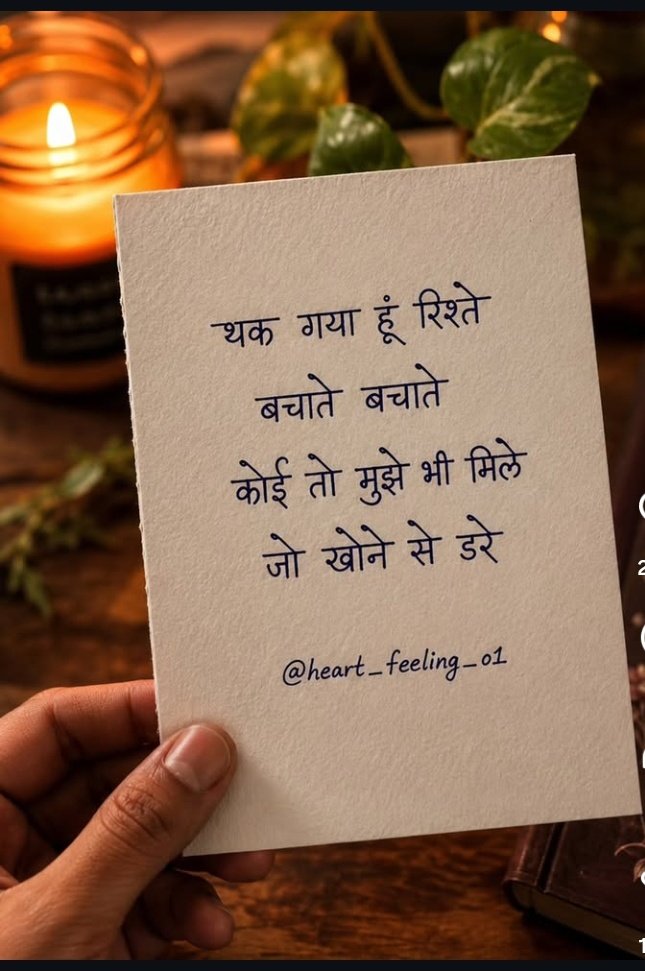 थक गया हूं रिश्ते
बचाते बचाते
कोई तो मुझे भी मिले
जो खोने से डरे
@heart_feeling_o1